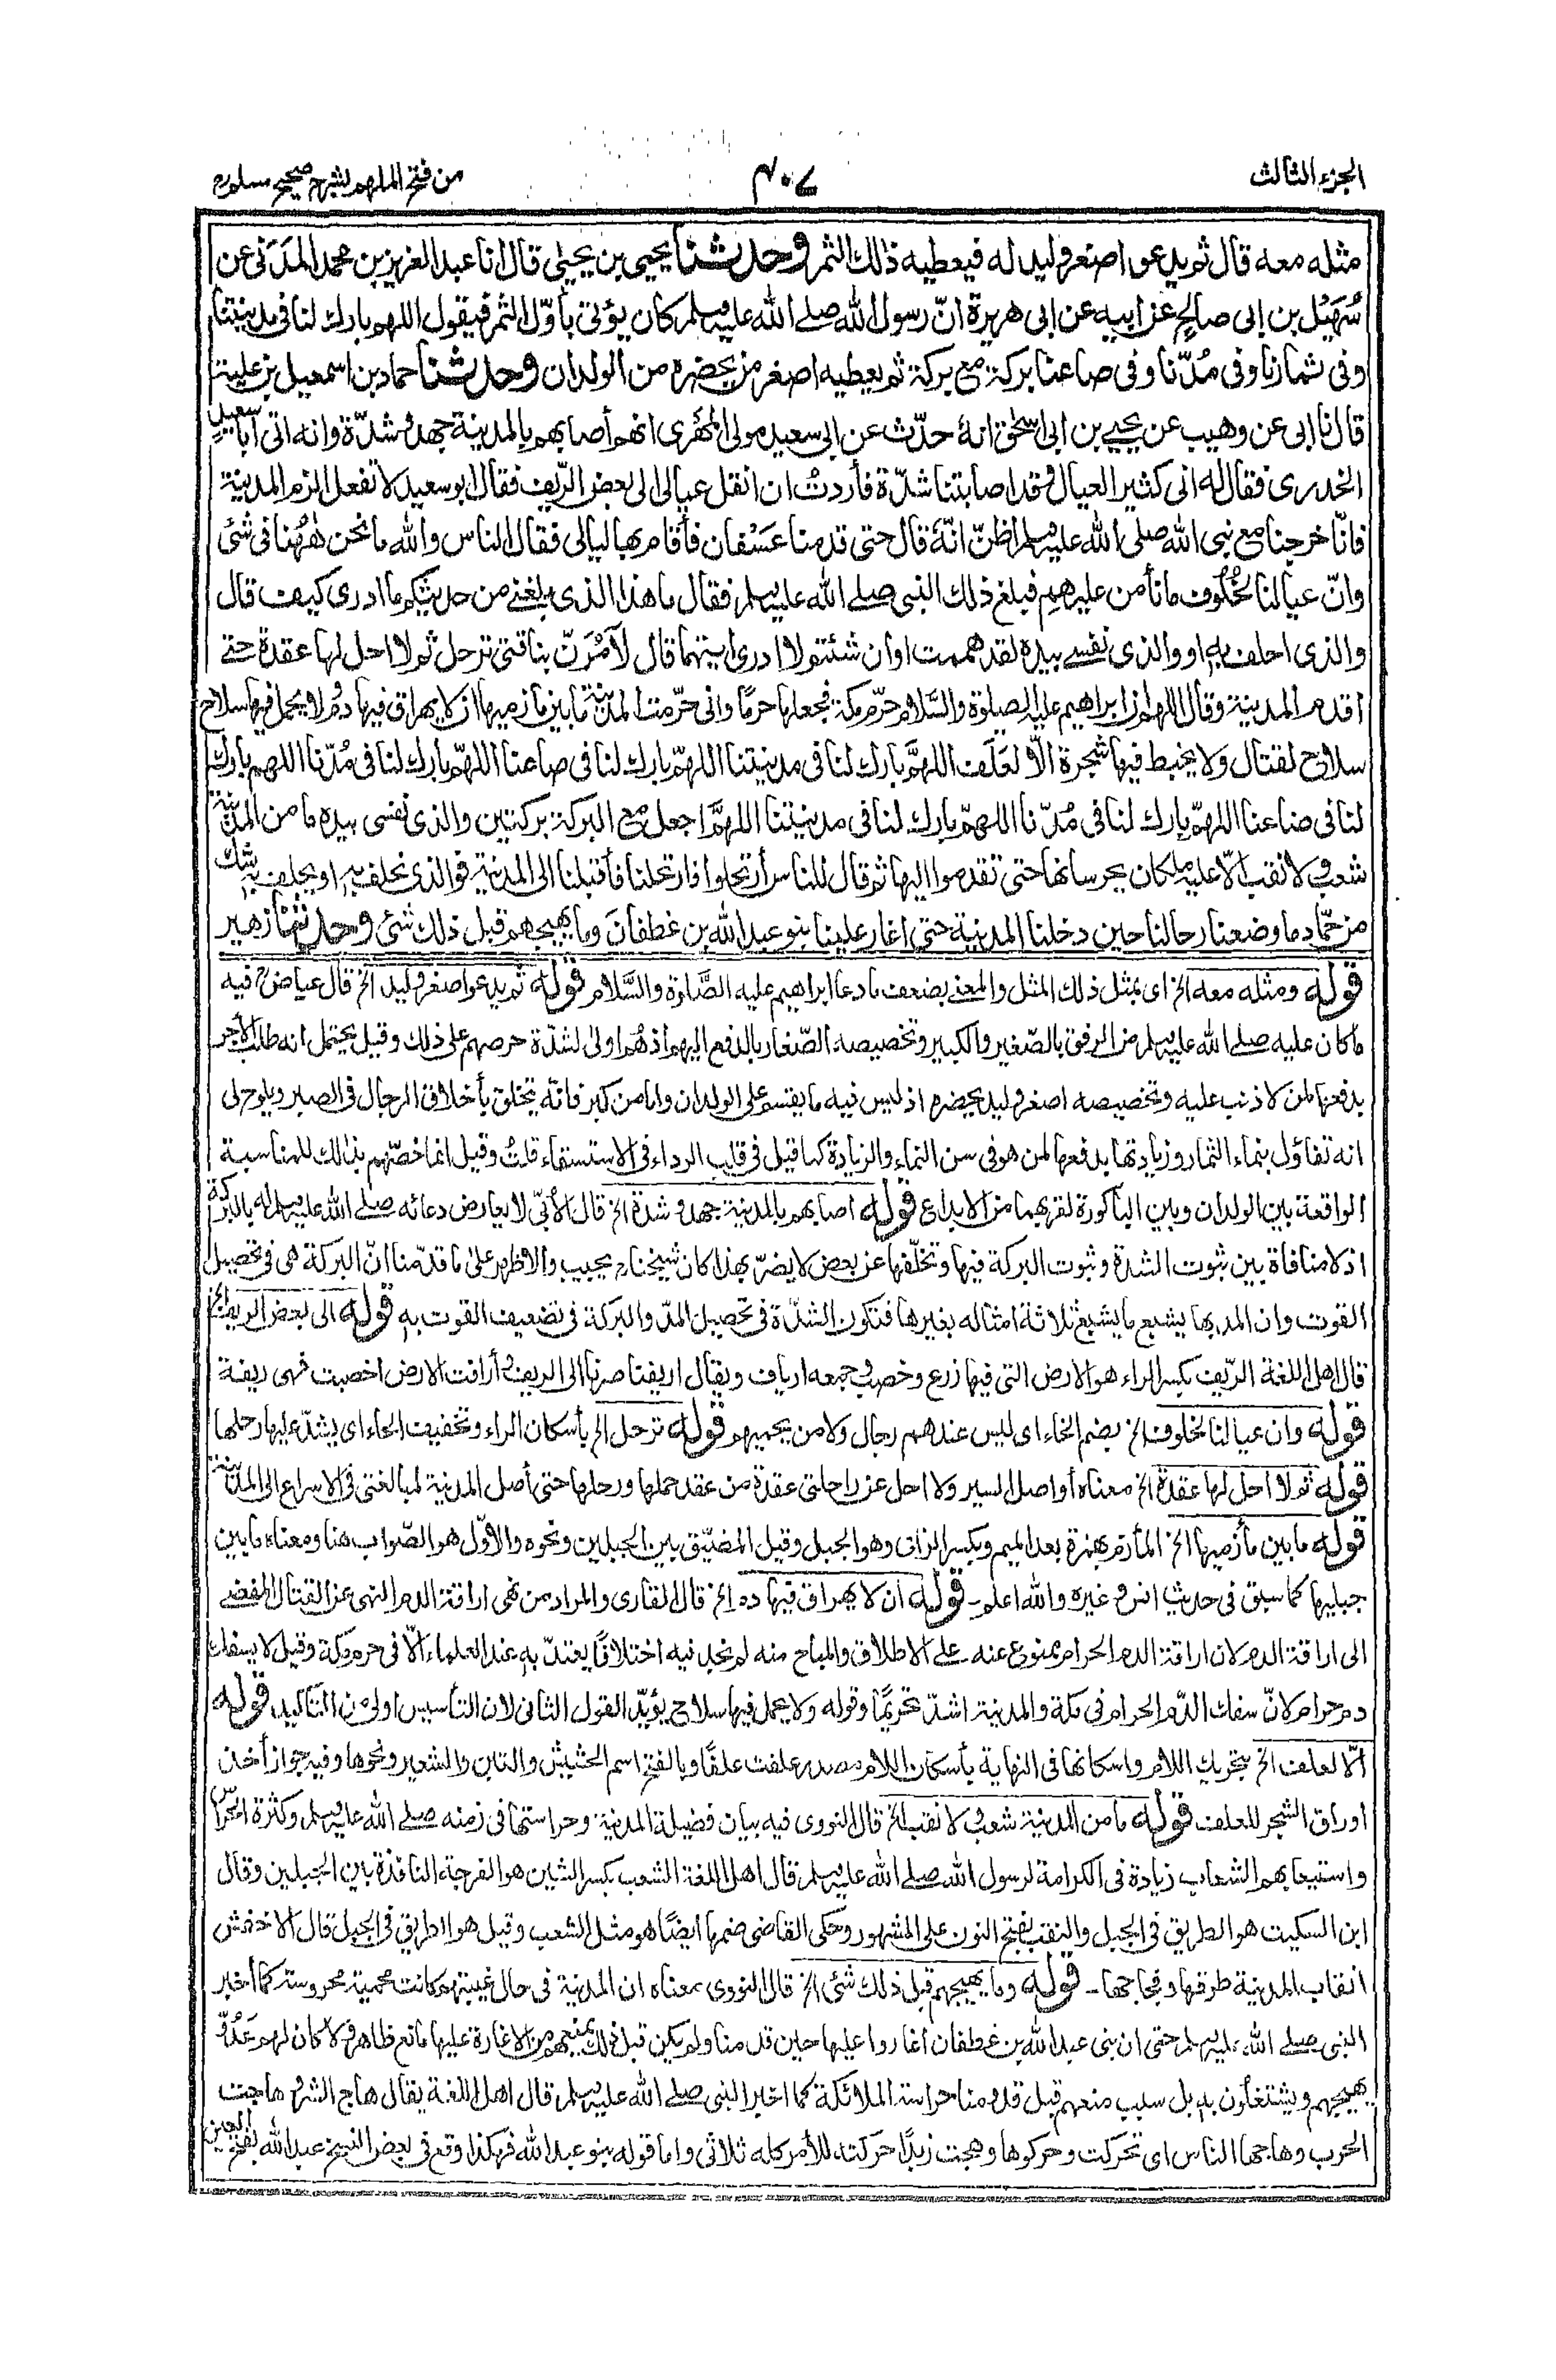 الجزء الثالث
٤٠٧
من فتح الملهم لشرح صحيح مسلم
مثله معه قال ثم يدعو اصغر وليد له فيعطيه ذلك الثمر وحدثنا يحيى بن يحيى قال انا عبد العزيز بن محمد المَدَنى عن
سُهَيْل بن ابى صالح عن ابيه عن ابى هريرة انّ رسول الله صلى الله عليه وسلم كان يؤتى بأوّل الثمر فيقول اللهم بارك لنا فى مدينتنا
وفى ثمارنا وفى مُدّنا وفى صاعنا بركة مع بركة ثم يعطيه اصغر من يحضره من الولدان وحدثنا حماد بن اسمعيل بن علية
قال نا ابى عن وهيب عن يحيى بن ابى اسحٰق انهٗ حدّث عن ابى سعيد مولى المَهْرى انهم أصابهم بالمدينة جهد وشدّة وانه اتى أبا سعيدٍ
الخدرى فقال له انى كثير العيال وقد اصابتنا شدّة فأردتُ ان انقل عيالى الى بعض الرّيف فقال ابو سعيد لا تفعل الزم المدينة
فانّا خرجنا مع نبى الله صلى الله عليه وسلم اظنّ انّهٗ قال حتى قدمنا عَسْفان فأقام بها ليالى فقال الناس والله ما نحن هٰهُنا فى شئ
وانّ عيالنا لخُلُوف ما نأمن عليهم فبلغ ذلك النبى صلى الله عليه وسلم فقال ما هذا الذى بلغنى من حديثكم ما ادرى كيف قال
والذى احلف به او والذى نفسى بيده لقد هممت او ان شئتم لا ادرى ايتهما قال لآمُرَنّ بناقتى ترحل ثم لا احل لها عقدة حتى
اقدم المدينة وقال اللهم ان ابراهيم عليه الصلوٰة والسَّلام حرّم مكة فجعلها حرمًا وانى حرّمت المدينة ما بين مأزميها ان لا يهراق فيها دمٌ ولا يحمل فيها سلاح
سلاح لقتال ولا يخبط فيها شجرة الّا لعَلَف اللهمَّ بارك لنا فى مدينتنا اللهمّ بارك لنا فى صاعنا اللهمّ بارك لنا فى مُدّنا اللهم بارك
لنا فى صاعنا اللهمّ بارك لنا فى مُدّنا اللهمّ بارك لنا فى مدينتنا اللهمَّ اجعل مع البركة بركتين والذى نفسى بيده ما من المدينة
شعب ولا نقب الّا عليه ملكان يحرسانها حتى تقدموا اليها ثم قال للناس ارتحلوا فارتحلنا فأقبلنا الى المدينة فوالذى نحلف به او يحلف به شك
من حمّاد ما وضعنا رحالنا حين دخلنا المدينة حتى اغار علينا بنو عبد الله بن غطفان وما يهيجهم قبل ذلك شئ وحدثنا زهير
قوله ومثله معه الخ اى بمثل ذلك المثل والمعنى بضعف ما دعا ابراهيم عليه الصَّلوٰة والسَّلام قوله ثم يدعو اصغر وليد الخ قال عياض ؒ فيه
ما كان عليه صلى الله عليه وسلم من الرفق بالصّغير والكبير وتخصيصه الصّغار بالدفع اليهم اذ هُم اولى لشدّة حرصهم على ذلك وقيل يحتمل انه طلب الأجر
بدفعها لمن لا ذنب عليه وتخصيصه اصغر وليد يحضره اذ ليس فيه ما يقسم على الولدان واما من كبر فانّه يتخلق بأخلاق الرجال فى الصبر ويلوح لى
انه تفاؤل بنماء الثمار وزيادتها بدفعها لمن هو فى سن النماء والزيادة كما قيل فى قلب الرداء فى الاستسقاء قلتُ وقيل انما خصّهم بذالك للمناسبة
الواقعة بين الولدان وبين الباكورة لقربهما من الابداع قوله اصابهم بالمدينة جهد وشدة الخ قال الأُبّى لا يعارض دعائه صلى الله عليه وسلم له بالبركة
اذ لا منافاة بين ثبوت الشدة وثبوت البركة فيها وتخلّفها عن بعض لا يضرّ بهذا كان شيخنا ؒ يجيب والاظهر علىٰ ما قدّمنا انّ البركة هى فى تحصيل
القوت وان المد بها يشبع ما يشبع ثلاثة امثاله بغيرها فتكون الشدّة فى تحصيل المدّ والبركة فى تضعيف القوت به قوله الى بعض الريف الخ
قال اهل اللغة الرّيف بكسر الراء هو الارض التى فيها زرع وخصب وجمعه ارياف ويقال اريفنا صرنا الى الريف وأرافت الارض اخصبت فهى ريفة
قوله وان عيالنا لخلوف الخ بضم الخاء اى ليس عندهم رجال ولا من يحميهم قوله ترحل الخ بأسكان الراء وتخفيف الحاء اى يشدّ عليها رحلها
قوله ثم لا احل لها عقدة الخ معناه أواصل السير ولا احل عن راحلتى عقدة من عقد حملها ورحلها حتى أصل المدينة لمبالغتى فى الاسراع الى المدينة
قوله ما بين مأزميها الخ المأزم بهمزة بعد الميم وبكسر الزاى وهو الجبل وقيل المضيّق بين الجبلين ونحوه والأوّل هو الصّواب هنا ومعناه ما بين
جبليها كما سبق فى حديث انس وغيره والله اعلم۔ قوله ان لا يهراق فيها دم الخ قال القارى والمراد من نهى اراقة الدم النهى عن القتال المفضى
الى اراقة الدم لان اراقة الدم الحرام ممنوع عنه على الاطلاق والمباح منه لم نجد فيه اختلافًا يعتدّ به عند العلماء الّا فى حرم مكة وقيل لا يسفك
دم حرام لانّ سفك الدّم الحرام فى مكة والمدينة اشدّ تحريمًا وقوله ولا يحمل فيها سلاح يؤيّد القول الثانى لان التأسيس اولى من التّاكيد، قوله
الّا لعلف الخ بتحريك اللام واسكانها فى النهاية بأسكان اللام مصدر علفت علفًا وبالفتح اسم الحشيش والتبن والشعير ونحوها وفيه جواز أخذ
اوراق الشجر للعلف قوله ما من المدينة شعب ولا نقب الخ قال النووى فيه بيان فضيلة المدينة وحراستها فى زمنه صلى الله عليه وسلم وكثرة الحرّاس
واستيعابهم الشعاب زيادة فى الكرامة لرسول الله صلى الله عليه وسلم قال اهل اللغة الشعب بكسر الشين هو الفرجة النافذة بين الجبلين وقال
ابن السكيت هو الطريق فى الجبل والنقب بفتح النون على المشهور وحكى القاضى ضمها أيضًا هو مثل الشعب وقيل هو الطريق فى الجبل قال الاخفش
انقاب المدينة طرقها وفجاجها۔ قوله وما يهيجهم قبل ذلك شئ الخ قال النووى معناه ان المدينة فى حال غيبتهم كانت محمية محروسة كما أخبر
النبى صلى الله عليه وسلم حتى ان بنى عبد الله بن غطفان اغاروا عليها حين قدمنا ولم يكن قبل ذلك يمنعهم من الاغارة عليها مانع ظاهر ولا كان لهم عَدُوّ
يهيجهم ويشتغلون به بل سبب منعهم قبل قدومنا حراسة الملائكة كما اخبر النبى صلى الله عليه وسلم قال اهل اللغة يقال هاج الشر وهاجت
الحرب وهاجها الناس اى تحركت وحركوها وهجت زيدًا حركته للأمر كله ثلاثى واما قوله بنو عبد الله فهكذا وقع فى بعض النسخ عبد الله بفتح العين